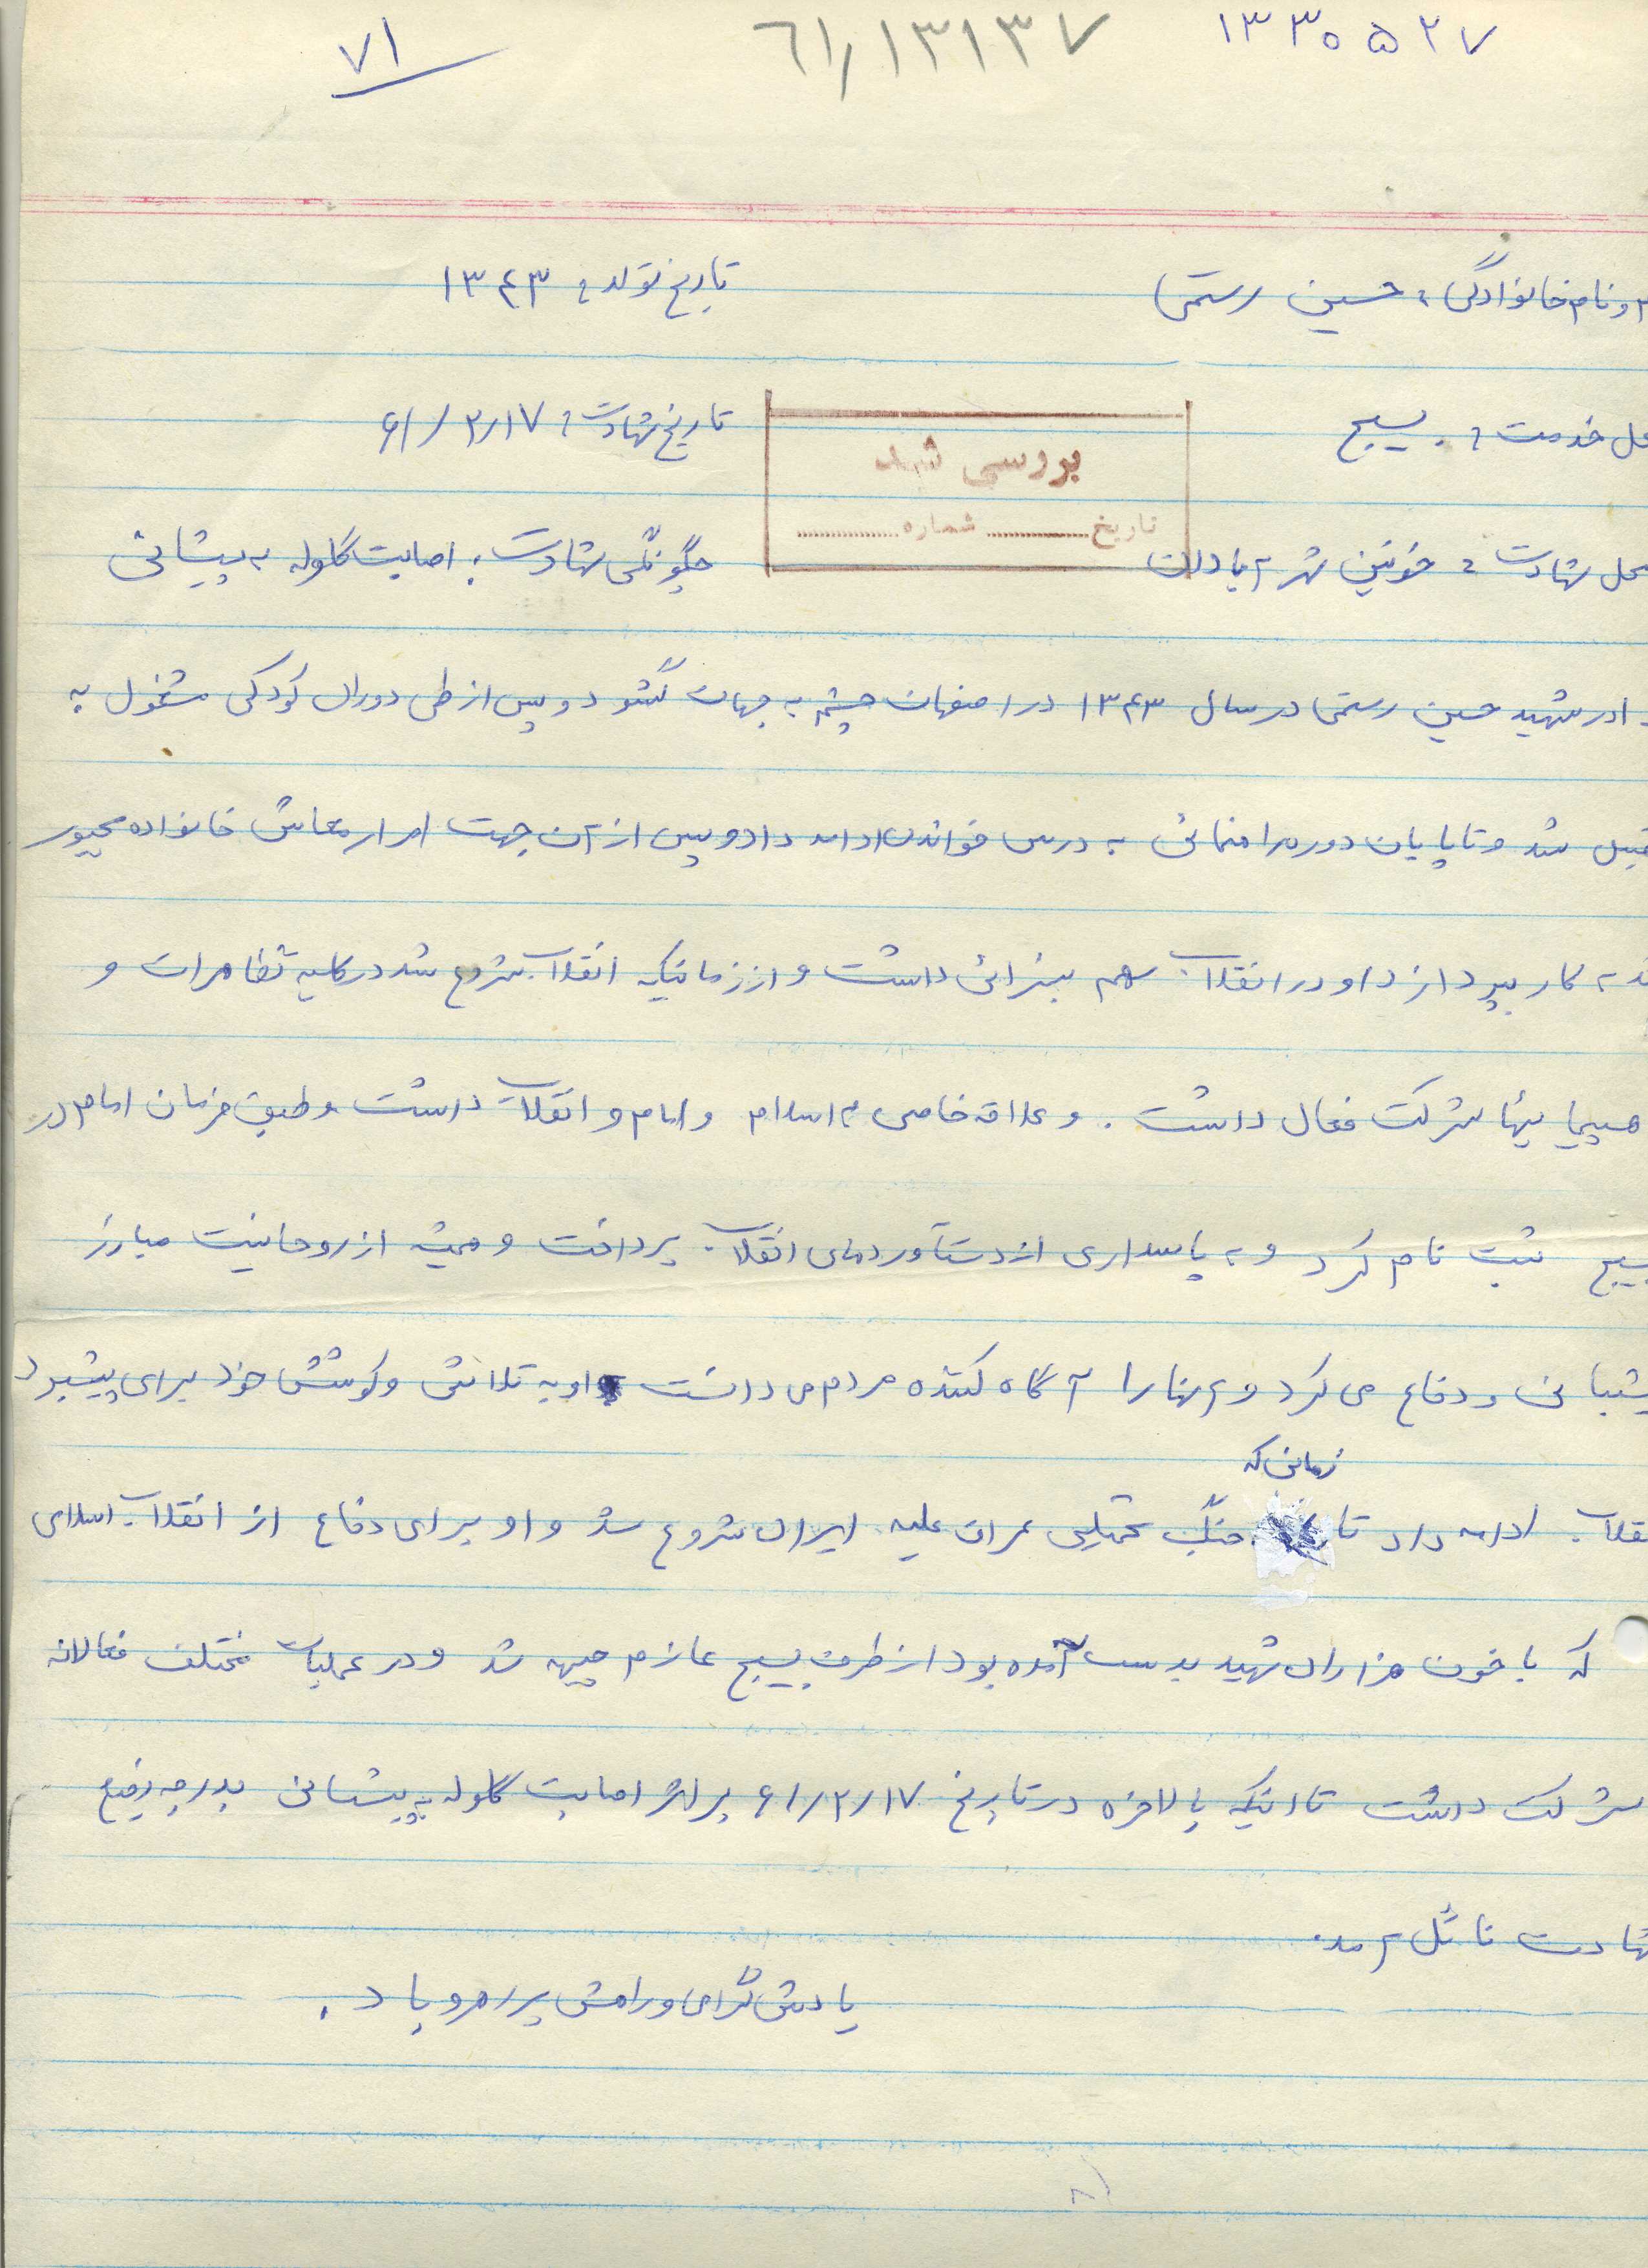 ۱۳۳۰۵۲۷ ۶۱/۱۳۱۳۷ ۷۱
م و نام خانوادگی : حسین رستمی تاریخ تولد : ۱۳۴۳
حل خدمت : بسیج تاریخ شهادت : ۶۱/۲/۱۷
بررسی شد
تاریخ ............ شماره ............
محل شهادت : خونین شهر آبادان چگونگی شهادت : اصابت گلوله به پیشانی
ادر شهید حسین رستمی در سال ۱۳۴۳ در اصفهان چشم به جهان گشود و پس از طی دوران کودکی مشغول به
صیل شد و تا پایان دوره راهنمائی به درس خواندن ادامه داد و پس از آن جهت امرار معاش خانواده مجبور
شد به کار بپردازد او در انقلاب سهم بسزائی داشت و از زمانیکه انقلاب شروع شد در کلیه تظاهرات و
هپیمائیها شرکت فعال داشت . و علاقه خاصی به اسلام و امام و انقلاب داشت و طبق فرمان امام در
بسیج ثبت نام کرد و به پاسداری از دستآوردهای انقلاب پرداخت و همیشه از روحانیت مبارز
شتیبانی و دفاع می کرد و آنها را آگاه کننده مردم می دانست او به تلاش و کوشش خود برای پیشبرد
نقلاب ادامه داد تا زمانی که جنگ تحمیلی عراق علیه ایران شروع شد و او برای دفاع از انقلاب اسلامی
که با خون هزاران شهید بدست آمده بود از طرف بسیج عازم جبهه شد و در عملیات مختلف فعالانه
شرکت داشت تا اینکه بالاخره در تاریخ ۶۱/۲/۱۷ بر اثر اصابت گلوله به پیشانی بدرجه رفیع
شهادت نائل آمد.
یادش گرامی و راهش پر رهرو باد .